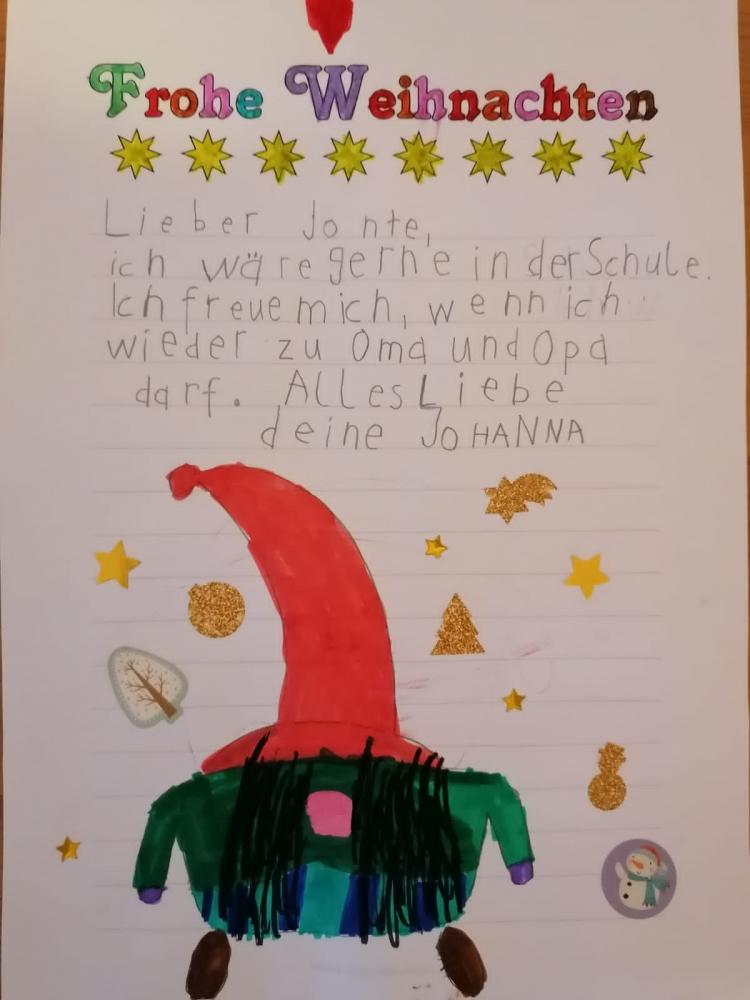 Frohe Weihnachten
Lieber Jonte,
ich wäre gerne in der Schule.
Ich freue mich, wenn ich
wieder zu Oma und Opa
darf. Alles Liebe
deine JoHANNA